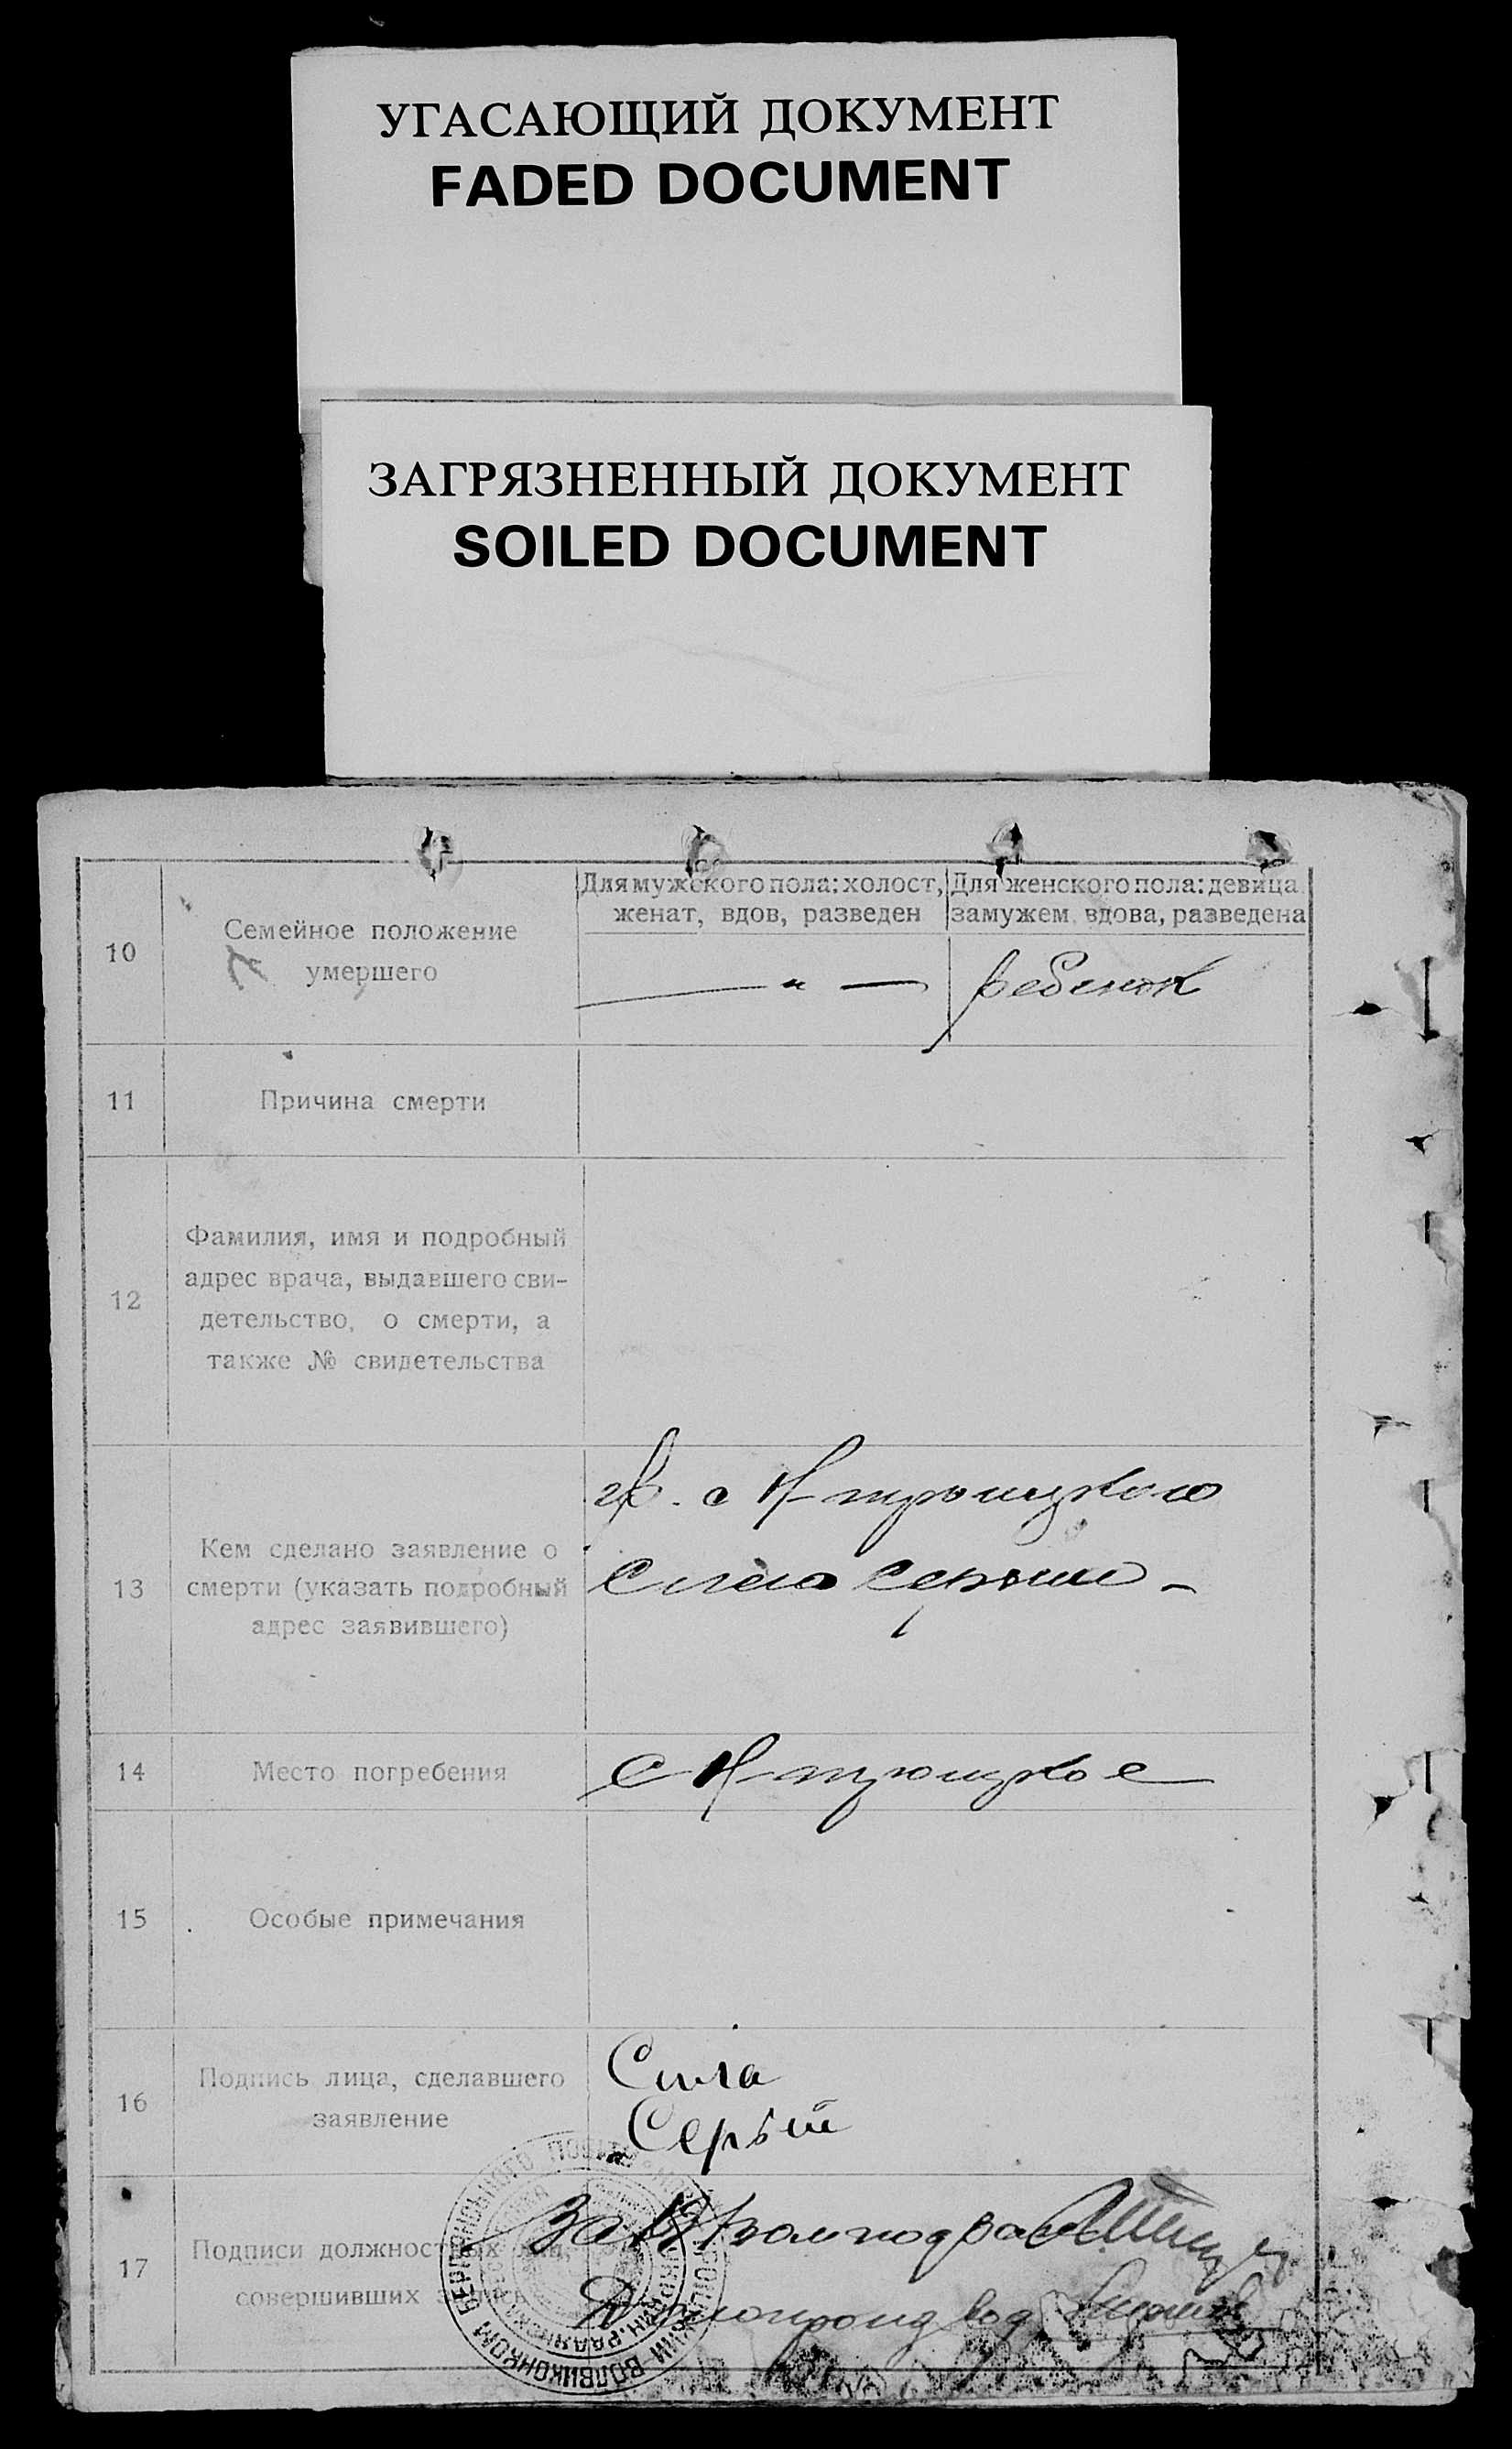 УГАСАЮЩИЙ ДОКУМЕНТ
FADED DOCUMENT
ЗАГРЯЗНЕННЫЙ ДОКУМЕНТ
SOILED DOCUMENT
10
Семейное положение
умершего
Для мужского пола: холост,
женат, вдов, разведен
Для женского пола: девица
замужем, вдова, разведена
— " —
ребенок
11
Причина смерти
12
Фамилия, имя и подробный
адрес врача, выдавшего сви-
детельство, о смерти, а
также № свидетельства
13
Кем сделано заявление о
смерти (указать подробный
адрес заявившего)
гр. с Н-троицкого
Сила Серый -
14
Место погребения
с Н-троицкое
15
Особые примечания
16
Подпись лица, сделавшего
заявление
Сила
Серый
17
Подписи должностных лиц,
совершивших запись
Делопроизвод
ВОЛВИКОНКОМ